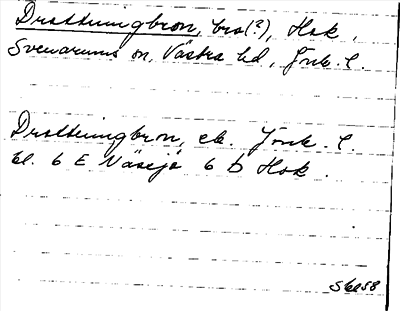 Drottningbron, bro(?), Hok,
Svenarums sn, Västra hd, Jönk. l.
Drottningbron, ek. Jönk. l.
bl. 6 E Nässjö 6 b Hok.